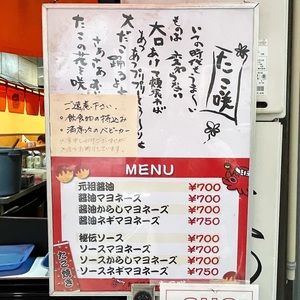 たこ咲
いつの時代もうまい
ものは変わらない
大口あけて頬張れば
大だこ踊るよ
さあさあ
たこの花が咲く
ご遠慮下さい
・飲食物の持込み
・満席次のベビーカー
MENU
元祖醤油 ¥700
醤油マヨネーズ ¥700
醤油からしマヨネーズ ¥700
醤油ネギマヨネーズ ¥750
秘伝ソース ¥700
ソースマヨネーズ ¥700
ソースからしマヨネーズ ¥700
ソースネギマヨネーズ ¥750
たこ焼き